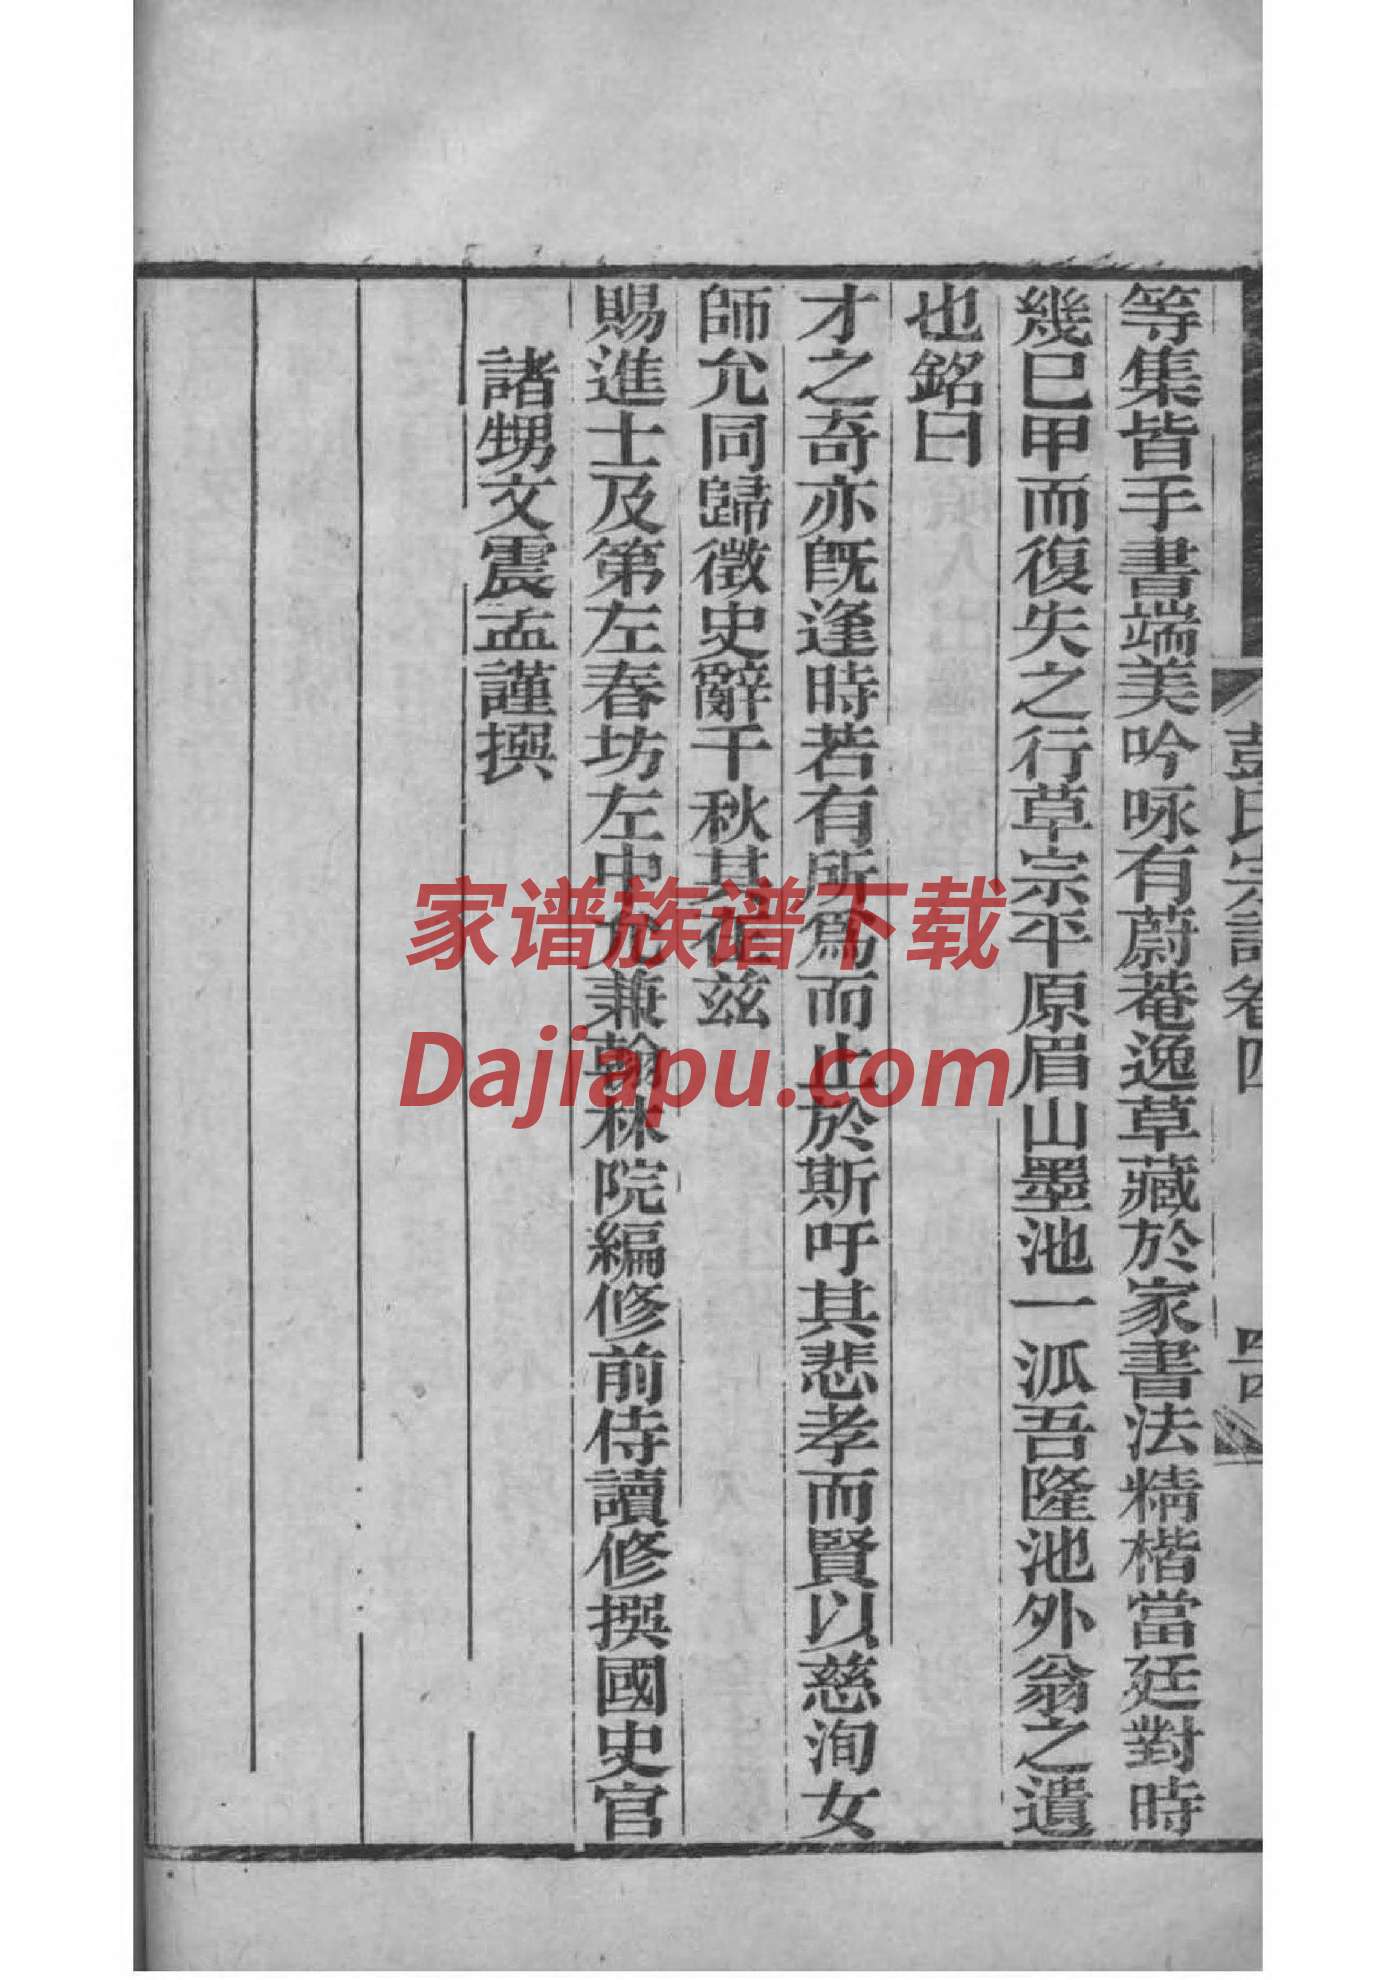 彭氏宗譜卷四
四
等集皆手書端美吟咏有蔚菴逸草藏於家書法精楷當廷對時
幾已甲而復失之行草宗平原眉山墨池一派吾隆池外翁之遺
也銘曰
才之奇亦既逢時若有所爲而止於斯吁其悲孝而賢以慈洵女
師允同歸徵史辭千秋其在茲
賜進士及第左春坊左中允兼翰林院編修前侍讀修撰國史官
諸甥文震孟謹撰
家谱族谱下载
Dajiapu.com